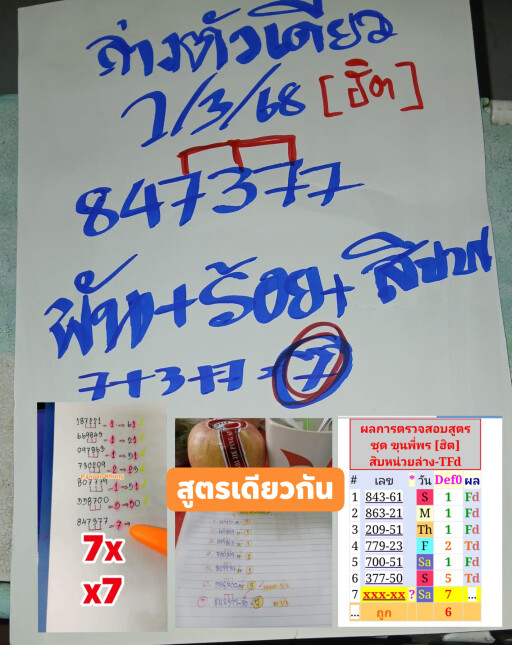 ล่างตัวเดียว
1/3/68 [ฮิต]
847377
พัน+ร้อย+สิบบน
7+3+7=7
597221-1→61
669843-1→21
097863-1→51
730209-2→23
807779-1→51
558700-5→50
847377-7→
7x
x7
สูตรเดียวกัน
ผลการตรวจสอบสูตร
ชุด ขุนพี่พร [ฮิต]
สิบหน่วยล่าง-TFd
# เลข * วัน Def0 ผล
1 843-61 S 1 Fd
2 863-21 M 1 Fd
3 209-51 Th 1 Fd
4 779-23 F 2 Td
5 700-51 Sa 1 Fd
6 377-50 S 5 Td
7 xxx-xx ? Sa 7 ...
... ถูก 6